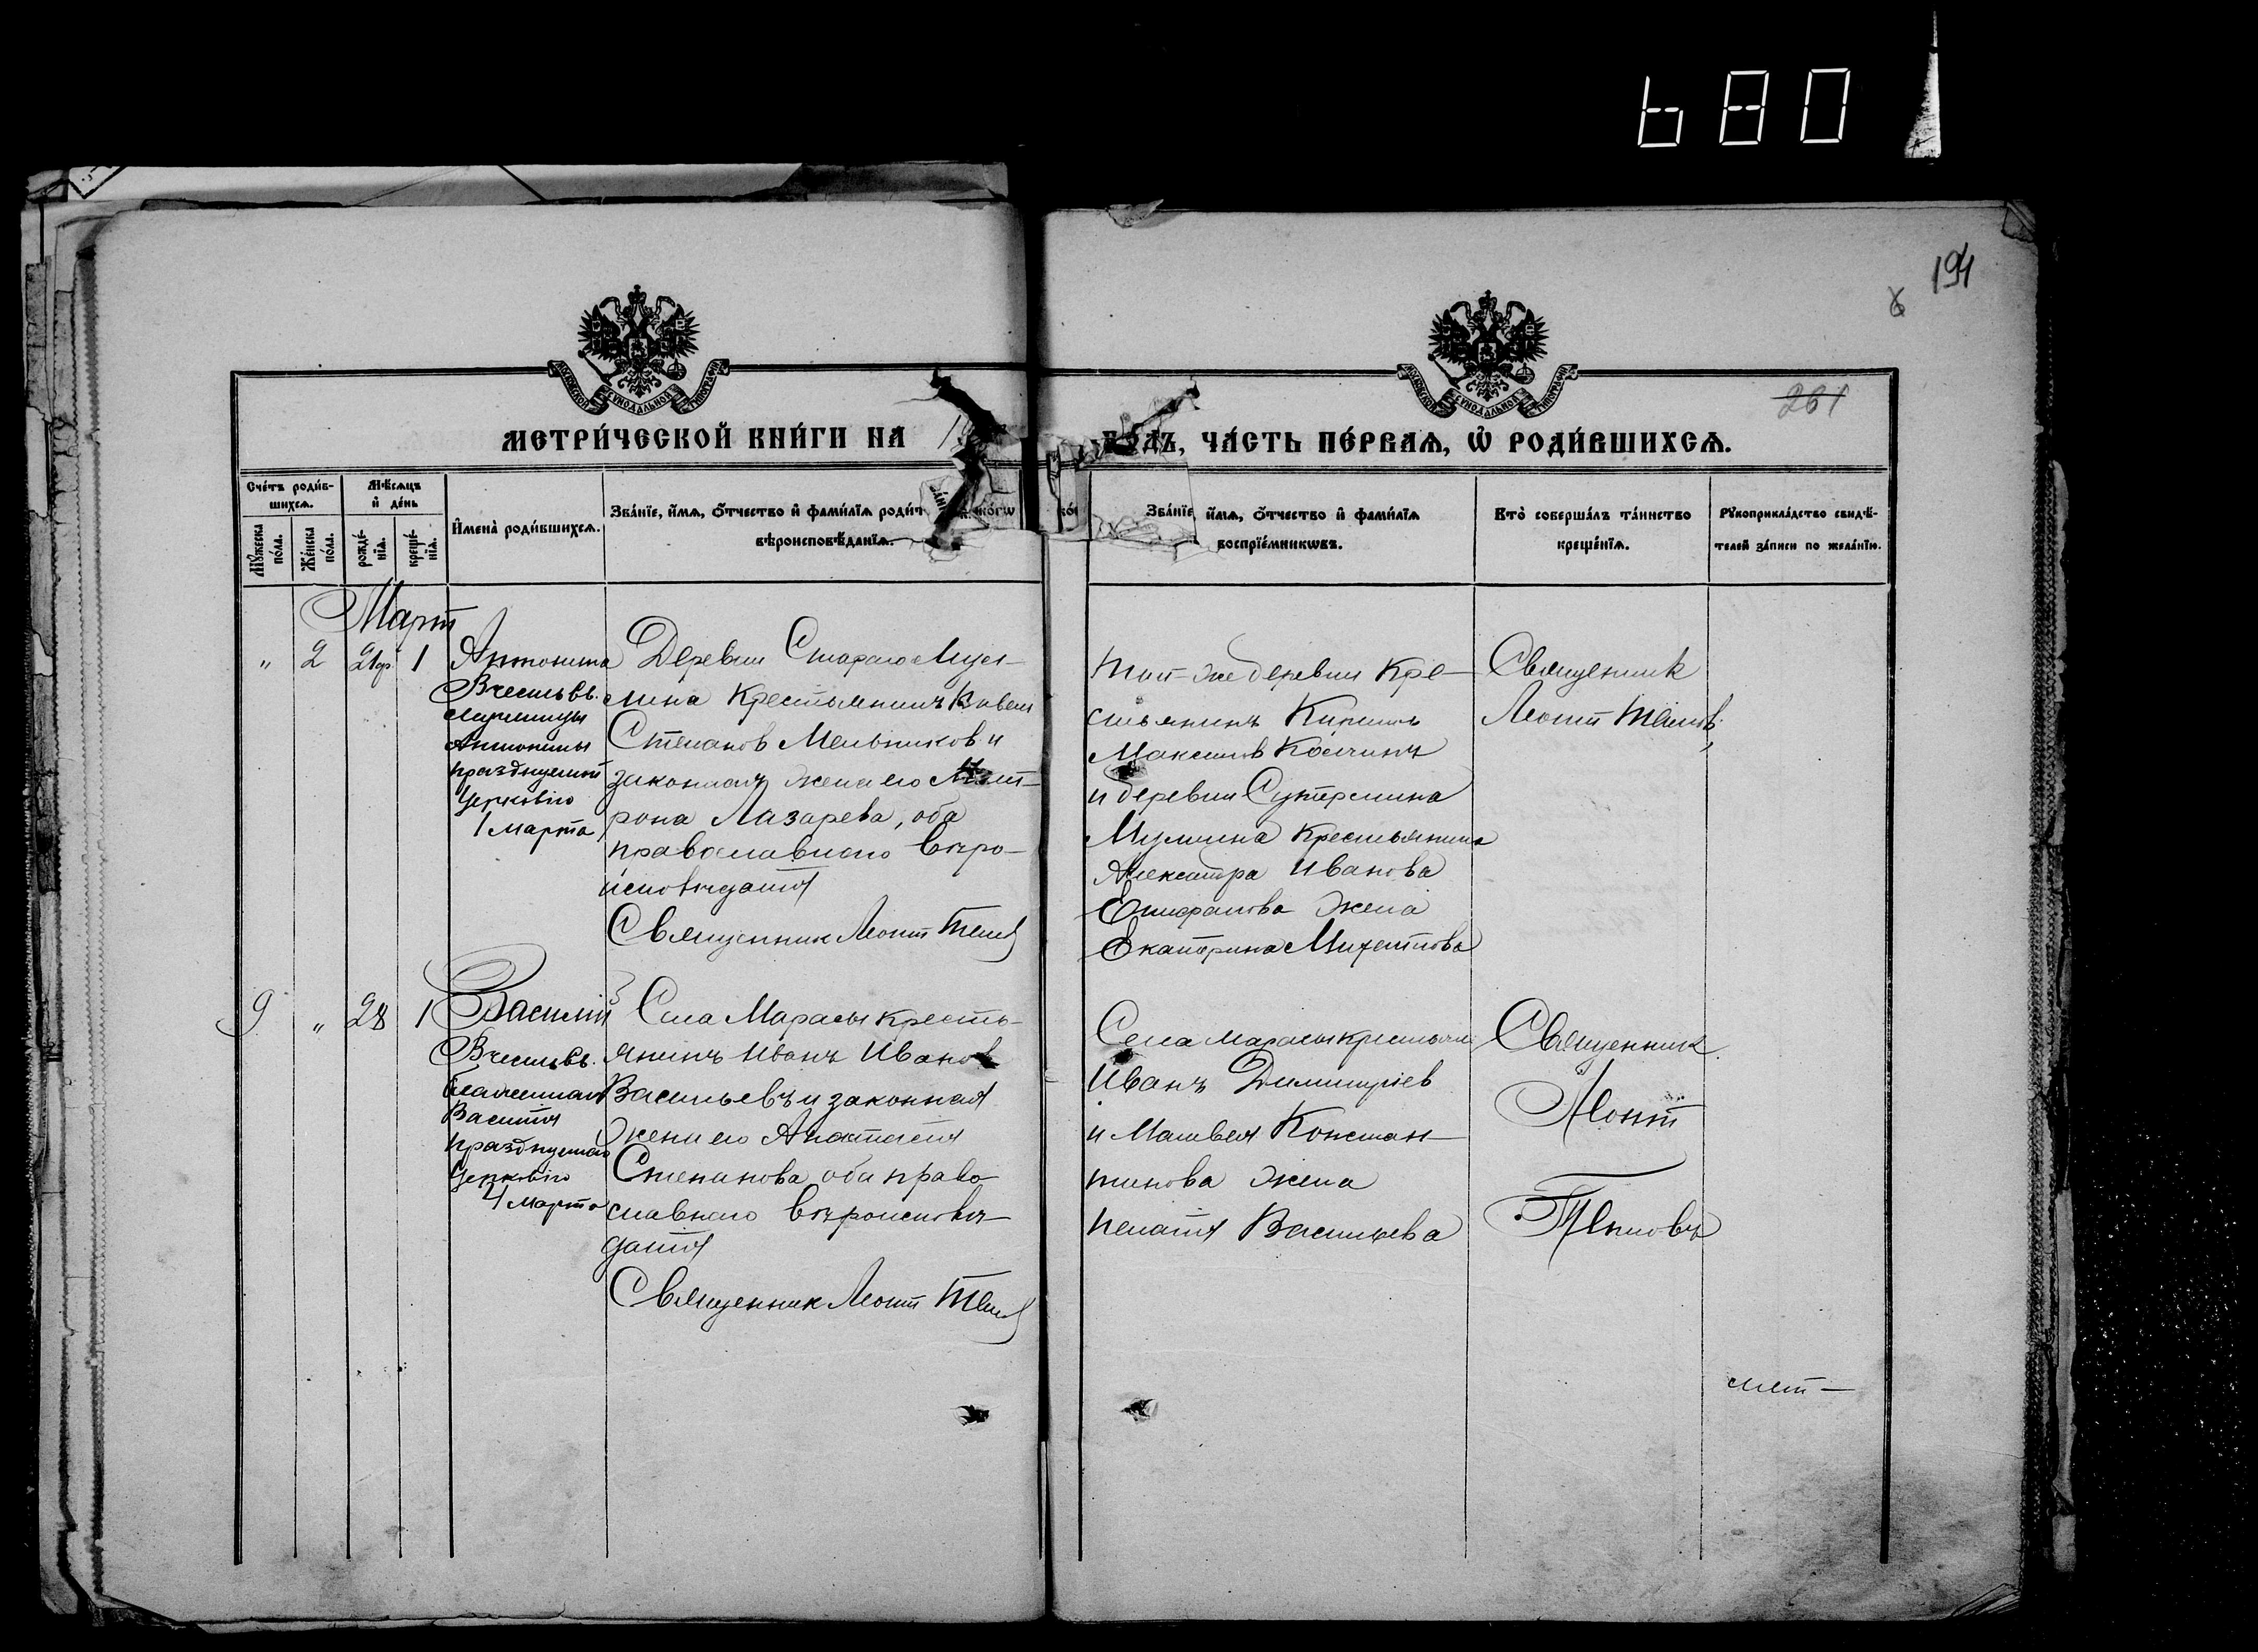 680
194
261
МЕТРИ́ЧЕСКОЙ КНИ́ГИ НА 1
ГОДЪ, ЧА́СТЬ ПЕ́РВАЯ, Ѡ҆ РОДИ́ВШИХСЯ.
Сче́тъ роди́в-
шихся.
Мꙋ́жеска
по́ла.
Же́нска
по́ла.
Мѣ́сяцъ
и҆ де́нь
рожде́-
нїя.
креще́-
нїя.
И҆мена̀ роди́вшихся.
Зва́нїе, и҆́мя, ѻ҆́тчество и҆ фами́лїя роди́т
вѣроисповѣ́данїя.
Зва́нїе, и҆́мя, ѻ҆́тчество и҆ фами́лїя
воспрїе́мникѡвъ.
Кто̀ соверша́лъ та́инство
креще́нїя.
Рꙋкоприкла́дство свидѣ́-
телей за́писи по жела́нїю.
Мартъ
" 2 1
Антонина
В честь св.
мученицы
Антонины
празднуемой
Церковію
1 Марта
Деревни Стараго Мул-
лина крестьянинъ
Степанов Мельников и
законная жена его Мат-
рона Лазарева, оба
православнаго вѣро-
исповѣданія
Священник Леонт
Той же деревни кре-
стьянинъ
Максимов
и деревни
Муллина крестьянина
Александра Иванова
Епифанова жена
Екатерина
Священник
Леонт
9 " 28 1
Василій
В честь св.
Василія
празднуемаго
Церковію
Марта
Села Марасы кресть-
янинъ Иванъ Иванов
Васильевъ и законная
жена его Анастасія
Степанова, оба право-
славнаго вѣроисповѣ-
данія
Священник Леонт
Села Марасы крестьян
Иванъ Димитріев
и Матвея Констан-
тинова жена
Пелагія Васильева
Священник
Леонт